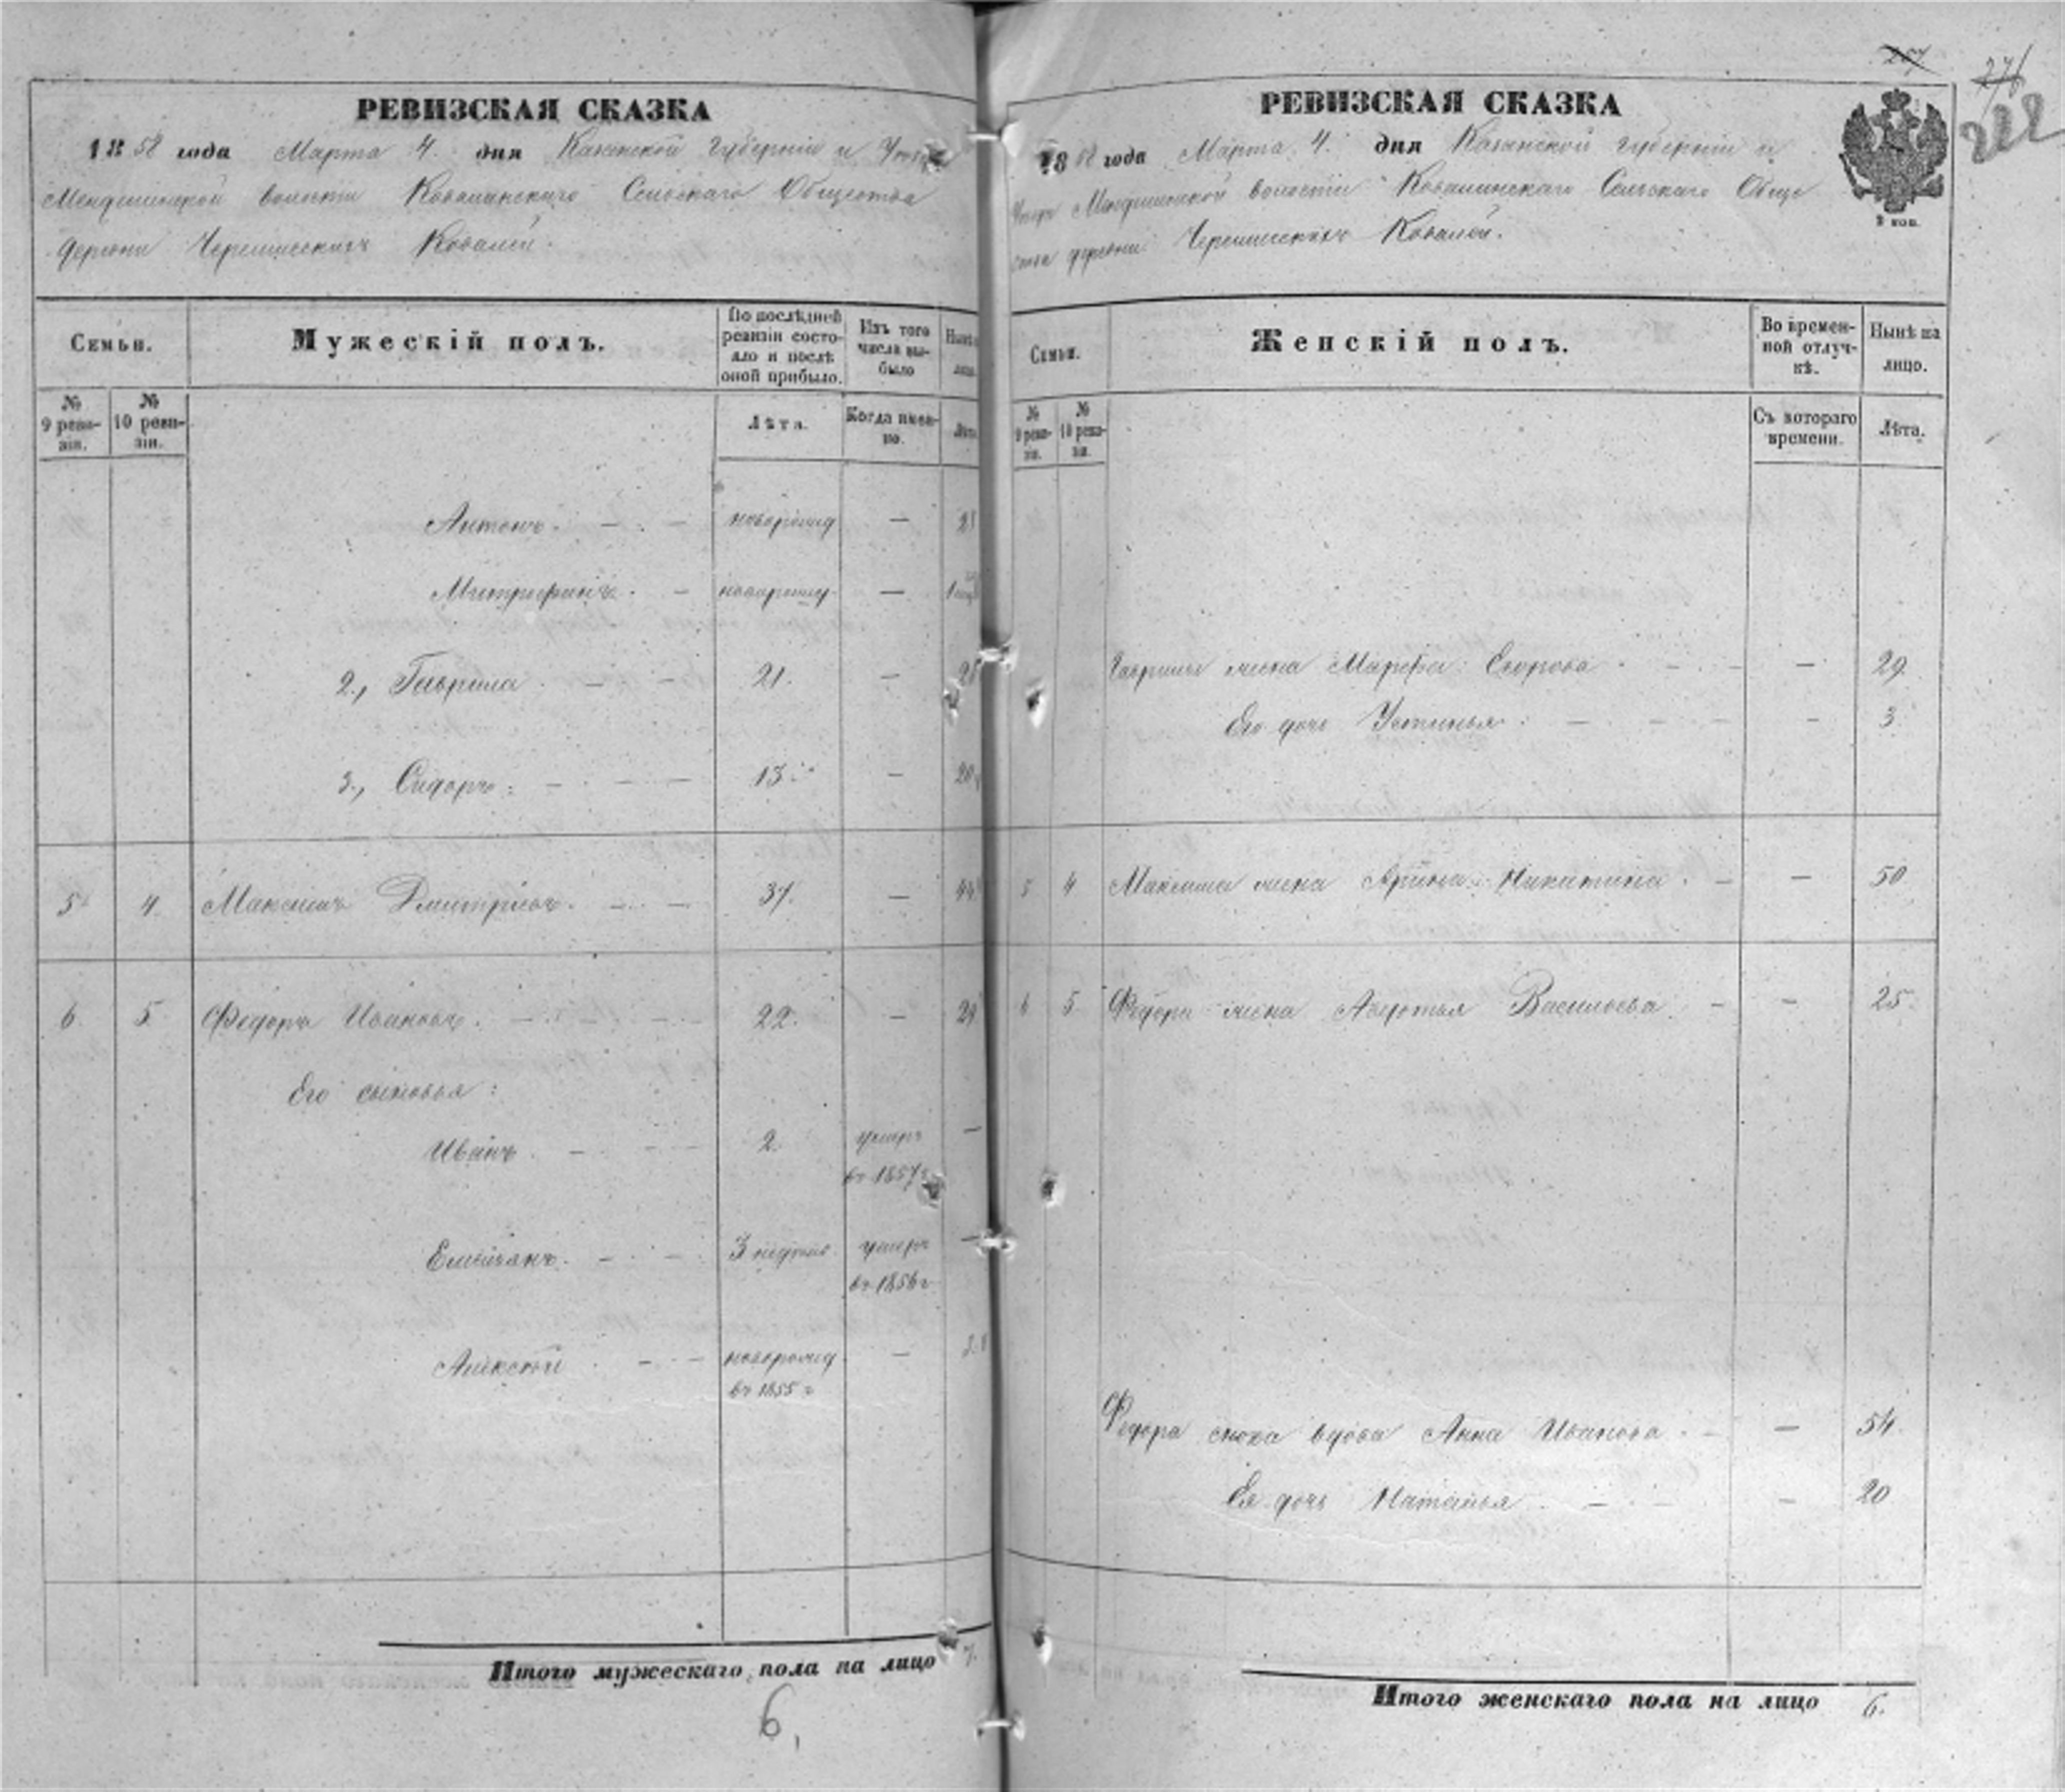 РЕВИЗСКАЯ СКАЗКА
1858 года Марта 4. дня Казанской Губернiи и
волости Ковалинскаго Сельскаго Общества
деревни Черемисскихъ Ковалей.
Семьи.
Мужескій полъ.
По послѣдней ревизіи состояло и послѣ оной прибыло.
Изъ того числа выбыло
Нынѣ
№ 9 ревизіи.
№ 10 ревизіи.
Лѣта.
Когда именно.
Лѣта
Антонъ. — новорожд —
Митрофанъ. — новорожд. —
2., Гаврила — 21. —
3., Сидоръ: — 13 — 20
5 4. Максимъ Дмитріевъ. — 37. — 44
6. 5. Федоръ Ивановъ. — 22. — 29
Его сыновья:
Иванъ — 2. умеръ —
въ 1857 г
Емельянъ. — 3 недѣль умеръ —
въ 1856 г
Алексѣй — новорожд —
въ 1855 г
Итого мужескаго пола на лицо 7.
6,
257
276
222
РЕВИЗСКАЯ СКАЗКА
1858 года Марта 4. дня Казанской Губерніи и
волости Ковалинскаго Сельскаго Обще
ства деревни Черемисскихъ Ковалей.
Семьи.
Женскій полъ.
Во временной отлучкѣ.
Нынѣ на лицо.
№ 9 ревизіи.
№ 10 ревизіи.
Съ котораго времени.
Лѣта.
Гаврилы жена Марфа Егорова — — 29.
Его дочь Устинья — — 3.
5 4 Максима жена Арина Никитина. — — 50
6 5. Федора жена Авдотья Васильева. — — 25.
Федора сноха вдова Анна Иванова. — — 54
Ея дочь Наталья — — 20
Итого женскаго пола на лицо 6.